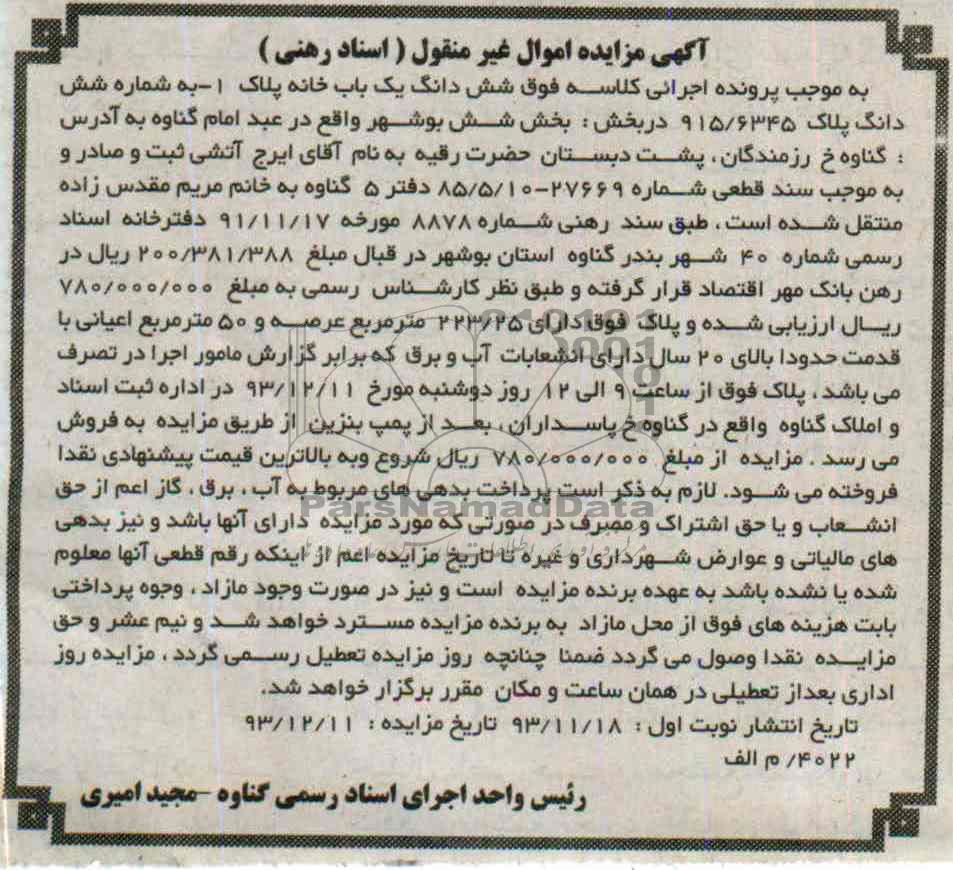 آگهی مزایده اموال غیر منقول ( اسناد رهنی )
به موجب پرونده اجرائی کلاسه فوق شش دانگ یک باب خانه پلاک ۱-به شماره شش
دانگ پلاک ۹۱۵/۶۳۴۵ دربخش : بخش شش بوشهر واقع در عبد امام گناوه به آدرس
: گناوه خ رزمندگان ، پشت دبستان حضرت رقیه به نام آقای ایرج آتشی ثبت و صادر و
به موجب سند قطعی شماره ۲۷۶۶۹-۸۵/۵/۱۰ دفتر ۵ گناوه به خانم مریم مقدس زاده
منتقل شده است ، طبق سند رهنی شماره ۸۸۷۸ مورخه ۹۱/۱۱/۱۷ دفترخانه اسناد
رسمی شماره ۴۰ شهر بندر گناوه استان بوشهر در قبال مبلغ ۲۰۰/۳۸۱/۳۸۸ ریال در
رهن بانک مهر اقتصاد قرار گرفته و طبق نظر کارشناس رسمی به مبلغ ۷۸۰/۰۰۰/۰۰۰
ریال ارزیابی شده و پلاک فوق دارای ۲۲۳/۲۵ مترمربع عرصه و ۵۰ مترمربع اعیانی با
قدمت حدودا بالای ۲۰ سال دارای انشعابات آب و برق که برابر گزارش مامور اجرا در تصرف
می باشد ، پلاک فوق از ساعت ۹ الی ۱۲ روز دوشنبه مورخ ۹۳/۱۲/۱۱ در اداره ثبت اسناد
و املاک گناوه واقع در گناوه خ پاسداران ، بعد از پمپ بنزین از طریق مزایده به فروش
می رسد . مزایده از مبلغ ۷۸۰/۰۰۰/۰۰۰ ریال شروع وبه بالاترین قیمت پیشنهادی نقدا
فروخته می شود. لازم به ذکر است پرداخت بدهی های مربوط به آب ، برق ، گاز اعم از حق
انشعاب و یا حق اشتراک و مصرف در صورتی که مورد مزایده دارای آنها باشد و نیز بدهی
های مالیاتی و عوارض شهرداری و غیره تا تاریخ مزایده اعم از اینکه رقم قطعی آنها معلوم
شده یا نشده باشد به عهده برنده مزایده است و نیز در صورت وجود مازاد ، وجوه پرداختی
بابت هزینه های فوق از محل مازاد به برنده مزایده مسترد خواهد شد و نیم عشر و حق
مزایده نقدا وصول می گردد ضمنا چنانچه روز مزایده تعطیل رسمی گردد ، مزایده روز
اداری بعداز تعطیلی در همان ساعت و مکان مقرر برگزار خواهد شد.
تاریخ انتشار نوبت اول : ۹۳/۱۱/۱۸ تاریخ مزایده : ۹۳/۱۲/۱۱
۴۰۲۲/ م الف
رئیس واحد اجرای اسناد رسمی گناوه -مجید امیری
ParsNamadData